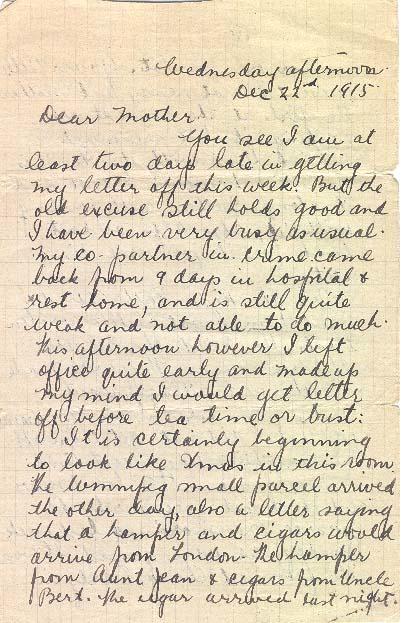 Wednesday afternoon.
Dec 22nd 1915.
Dear Mother
You see I am at
least two days late in getting
my letter off this week. But the
old excuse still holds good and
I have been very busy as usual.
My co-partner in crime came
back from 9 days in hospital &
rest home, and is still quite
weak and not able to do much.
This afternoon however I left
office quite early and made up
my mind I would get letter
off before tea time or bust:
It is certainly beginning
to look like Xmas in this room.
The Winnipeg small parcel arrived
the other day, also a letter saying
that a hamper and cigars would
arrive from London. The hamper
from Aunt Jean & cigars from Uncle
Bert. The cigar arrived last night.